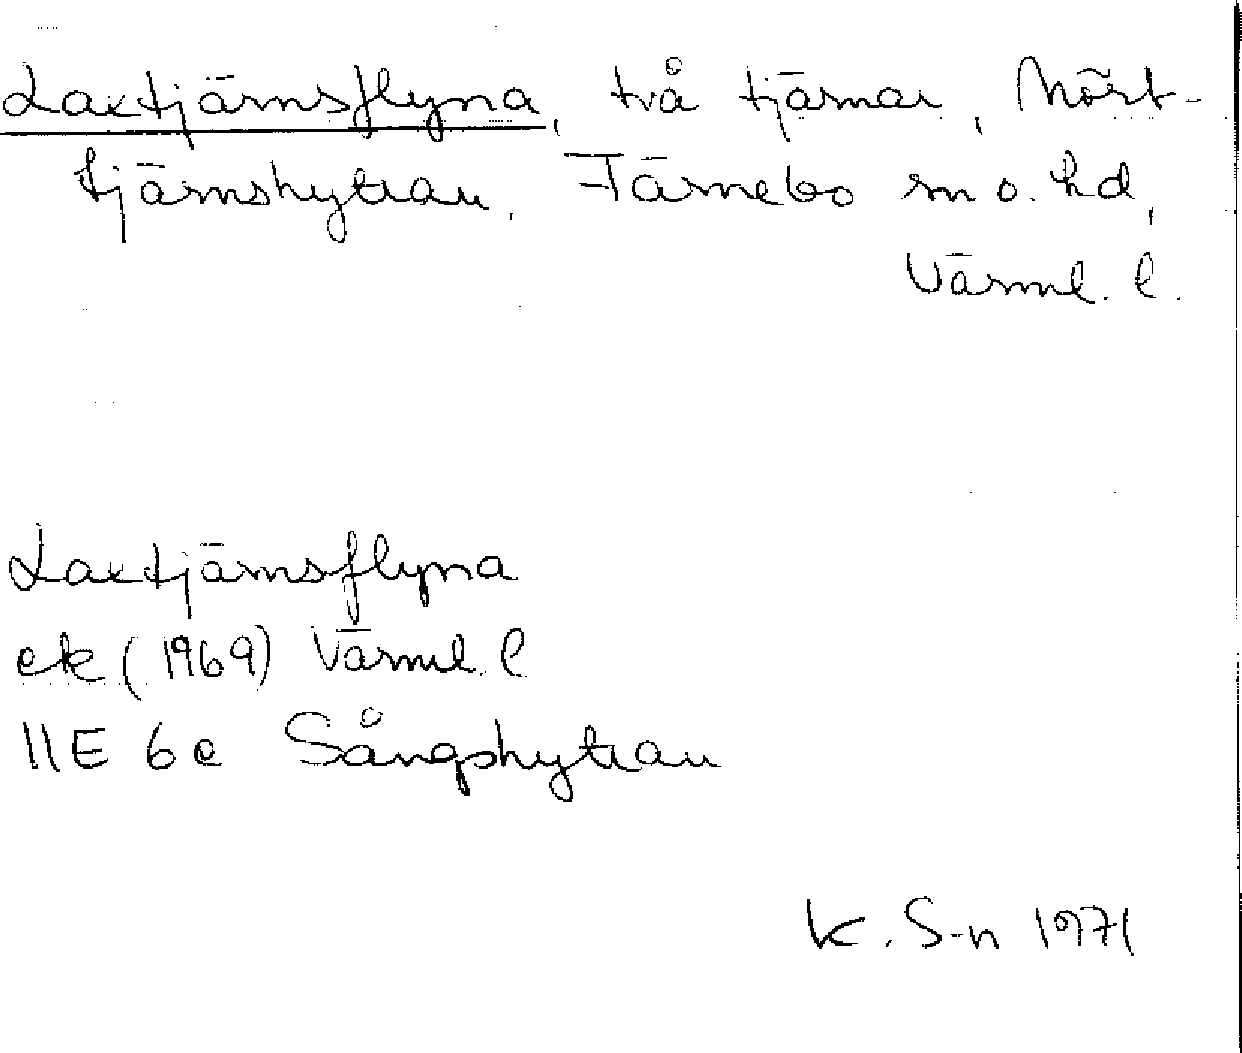 Laxtjärnsflyna, två tjärnar, Mört-
tjärnshyttan, Färnebo sn o. hd,
Värml. l.
Laxtjärnsflyna
ek (1969) Värml. l
11E 6e Sångshyttan
K. S-n 1971